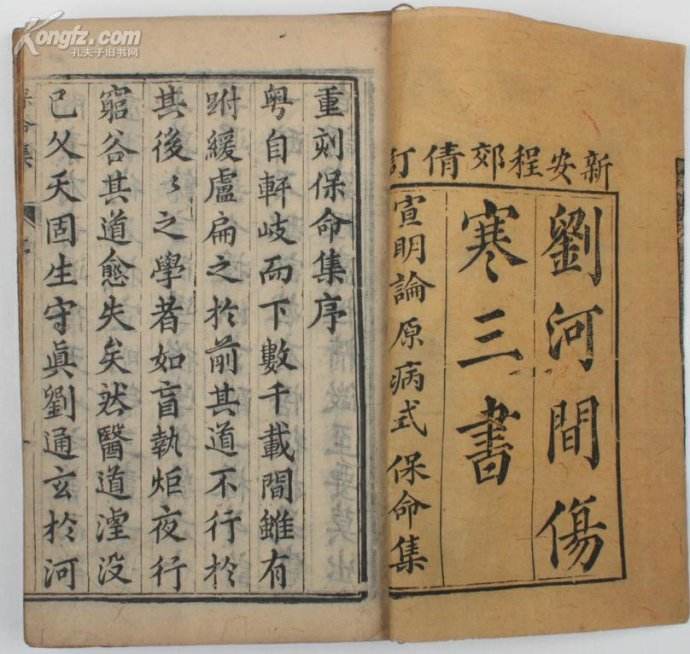 新安程郊倩訂
劉河間傷
寒三書
宣明論 原病式 保命集
重刻保命集序
粤自軒岐而下數千載間雖有
跗緩盧扁之於前其道不行於
其後〻之學者如盲執炬夜行
窮谷其道愈失矣然醫道湮没
已乆天固生守眞劉通玄於河
保命集
Kongfz.com
孔夫子旧书网